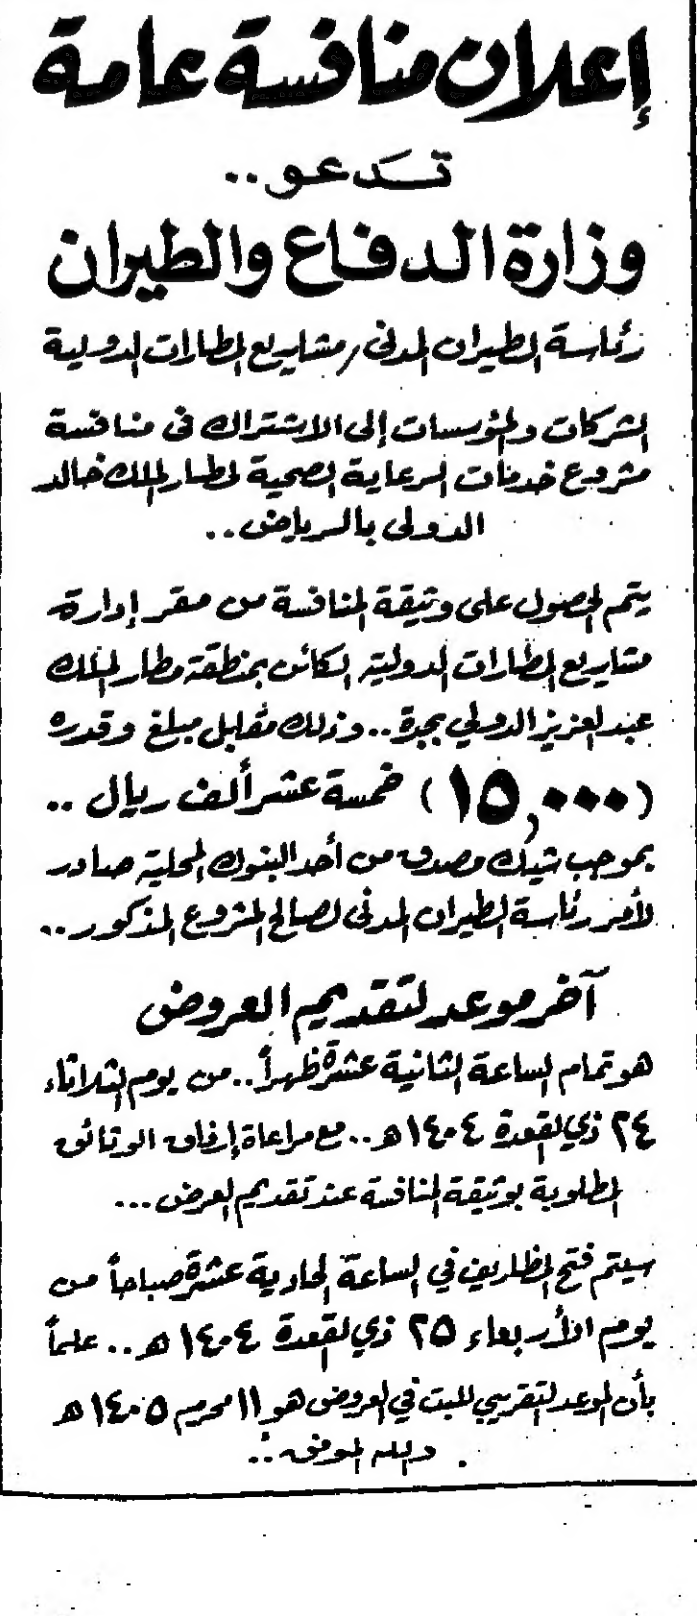 إعلان منافسة عامة
تدعو..
وزارة الدفاع والطيران
رئاسة الطيران المدني / مشاريع المطارات الدولية
الشركات والمؤسسات إلى الاشتراك في منافسة
مشروع خدمات الرعاية الصحية لمطار الملك خالد
الدولي بالرياض..
يتم الحصول على وثيقة المنافسة من مقر إدارة
مشاريع المطارات الدولية الكائن بمنطقة مطار الملك
عبد العزيز الدولي بجدة.. وذلك مقابل مبلغ وقدره
(١٥,٠٠٠) خمسة عشر ألف ريال..
بموجب شيك مصدق من أحد البنوك المحلية صادر
لأمر رئاسة الطيران المدني لصالح المشروع المذكور..
آخر موعد لتقديم العروض
هو تمام الساعة الثانية عشرة ظهراً.. من يوم الثلاثاء
٢٤ ذي القعدة ١٤٠٤هـ.. مع مراعاة إرفاق الوثائق
المطلوبة بوثيقة المنافسة عند تقديم العرض...
سيتم فتح المظاريف في الساعة الحادية عشرة صباحاً من
يوم الأربعاء ٢٥ ذي القعدة ١٤٠٤هـ.. علماً
بأن الموعد التقريبي للبت في العروض هو ١١ محرم ١٤٠٥هـ
والله الموفق..